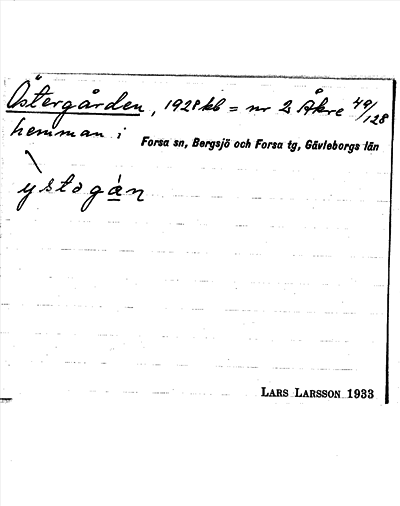 Östergården, 1928 kb = nr 2 Åkre 49/128
hemman i Forsa sn, Bergsjö och Forsa tg, Gävleborgs län
\ ystogán
LARS LARSSON 1933